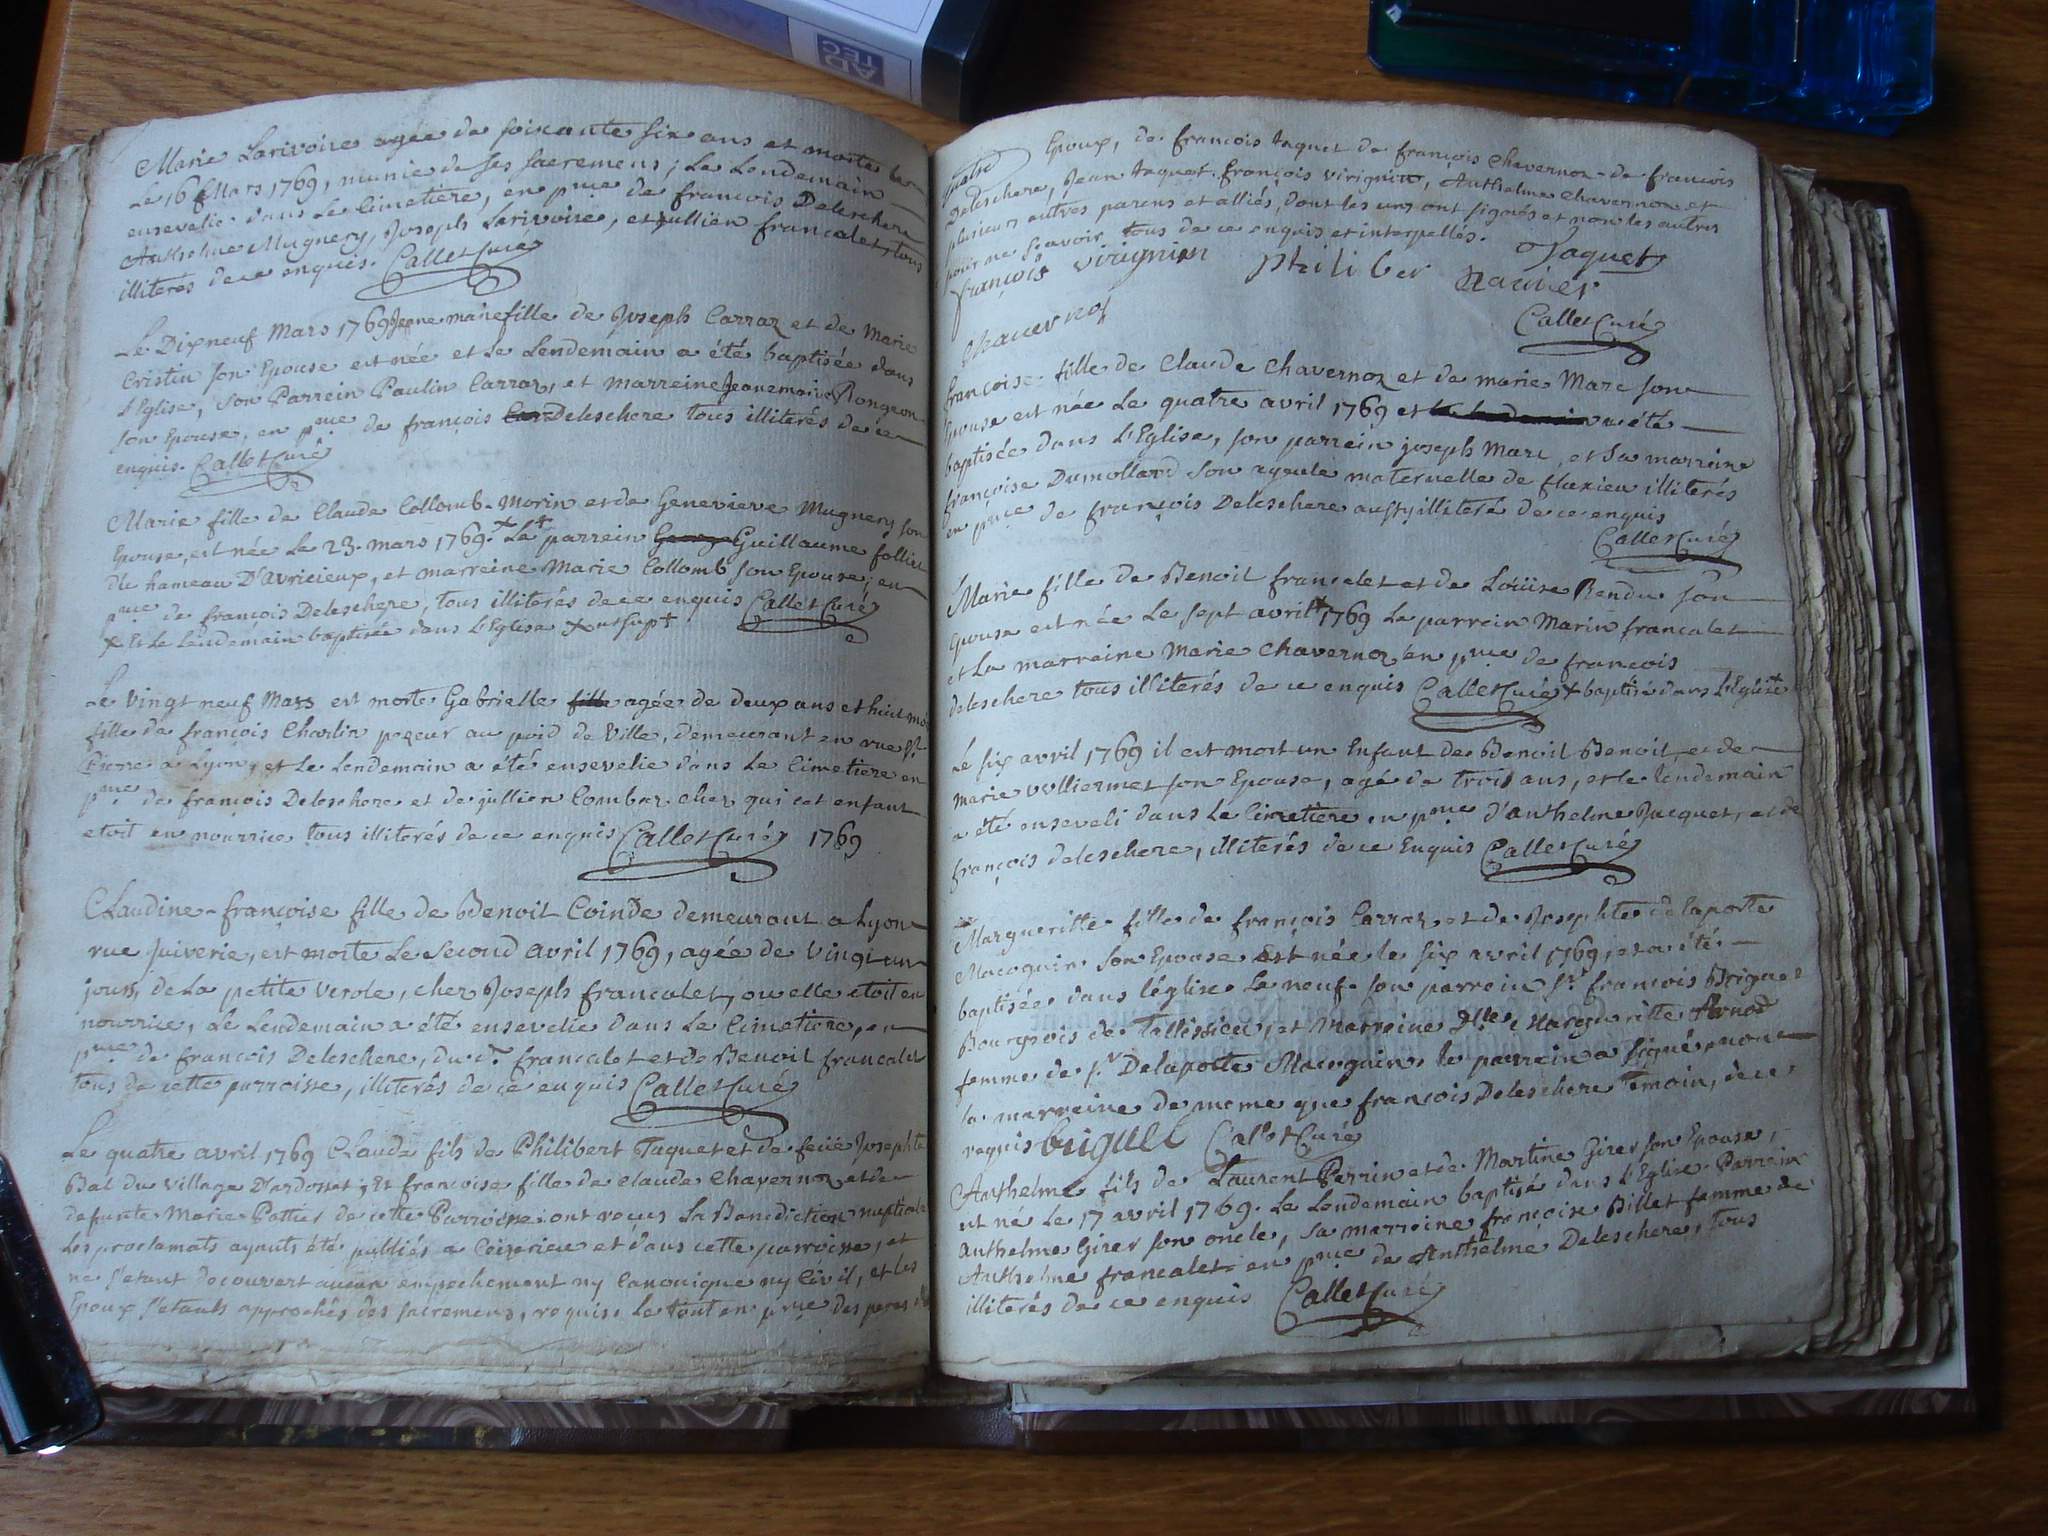 AD
TEC
Marie Larivoire agée de soixante six ans et morte
Le 16 Mars 1769, munie de ses sacremens ; Le Lendemain
ensevelie dans Le Cimetiere, en pnce de françois Deleschere
Anthelme Mugnery, Joseph Larivoire, et jullien francalet, tous
illiterés de ce enquis. Callet Curé
Le Dixneuf Mars 1769 Jeane marie fille de Joseph Carraz et de Marie
Cristin son Epouse est née et Le Lendemain a été baptisée dans
L'Eglise, son Parrein Paulin Carraz, et marreine Jeanemarie Rongeon
son Epouse, en pnce de françois Deleschere tous illiterés de ce
enquis. Callet Curé
Marie fille de Claude Collomb-Morin et de Genevieve Mugnery son
Epouse, est née Le 23. mars 1769. Le parrein Guillaume folliet
du hameau D'avricieux, et marreine Marie Collomb son Epouse ; en
pnce de françois Deleschere, tous illiterés de ce enquis Callet Curé
x Et Le Lendemain baptisée dans L'Eglise
Le vingt neuf Mars est morte Gabrielle fille agée de deux ans et huit
fille de françois Charlin pezeur au poid de Ville, demeurant en rue St
Pierre a Lyon, et Le Lendemain a été ensevelie dans Le Cimetiere en
pnce de françois Deleschere et de jullien Combaz chez qui cet enfant
etoit en nourrice tous illiterés de ce enquis Callet Curé 1769
Claudine-françoise fille de Benoit Cointe demeurant a Lyon
rue juiverie, est morte Le second avril 1769, agée de vingt un
jours, de La petite verole, chez Joseph francalet, ou elle etoit en
nourrice, Le Lendemain a été ensevelie dans Le Cimetiere, en
pnce de françois Deleschere, du dt francalet et de Benoit francalet
tous de cette parroisse, illiterés de ce enquis Callet Curé
Le quatre avril 1769 Claude fils de Philibert Jaquet et de feüe Josephte
Bal du village D'ardosset ; Et françoise fille de Claude Chavernoz et de
defunte Marie Pottier de cette Parroisse ont reçus La Benediction nuptiale
Les proclamats ayants été publiés a Ceiserieu et dans cette parroisse, et
ne s'etant decouvert aucun empechement ny Canonique ny Civil, et les
Epoux s'etants approchés des sacremens, requis. Le tout en pnce des peres
Epoux, de françois Jaquet de françois Chavernoz de françois
Deleschere, Jean Jaquet. françois virignin, Anthelme Chavernoz et
plusieurs autres parens et alliés, dont les uns ont signés et non les autres
pour ne sçavoir tous de ce enquis et interpellés.
Jaquet
françois virignin philiber
Chavernoz
Callet Curé
françoise fille de Claude Chavernoz et de marie Marc son
Epouse est née Le quatre avril 1769 et a été
baptisée dans L'Eglise, son parrein joseph Marc, et sa marreine
françoise Dumollard son ayeule maternelle de fluxieu illiterés
en pnce de françois Deleschere aussy illiteré de ce enquis
Callet Curé
Marie fille de Benoit francalet et de Loüise Rendu son
Epouse est née Le sept avril 1769 Le parrein Marin francalet
et La marreine Marie Chavernoz en pnce de françois
deleschere tous illiterés de ce enquis Callet Curé x baptisée dans L'Eglise
Le six avril 1769 il est mort un Enfant de Benoit Benoit et de
marie vulliermet son Epouse, agé de trois ans, et le lendemain
a été enseveli dans Le Cimetiere en pnce d'anthelme Jacquet, et de
françois deleschere, illiterés de ce Enquis Callet Curé
Margueritte fille de françois Carraz et de Josephte delaporte
Macoquin son Epouse est née le six avril 1769, et a été
baptisée dans l'église Le neuf. son parrein sr françois Briguet
Bourgeois de Tallissieu, et Marreine Dlle Margueritte Arnod
femme de sr Delaporte Macoquin. le parrein a signé, non
la marreine de meme que françois Deleschere Temoin, de ce
requis briguet Callet Curé
Anthelme fils de Laurent Perrin et de Martine Girer son Epouse,
est né Le 17 avril 1769. Le Lendemain baptisé dans L'Eglise. Parrein
anthelme Girer son oncle, sa marreine françoise Billet femme de
Anthelme francalet en pnce de Anthelme Deleschere, tous
illiterés de ce enquis Callet Curé